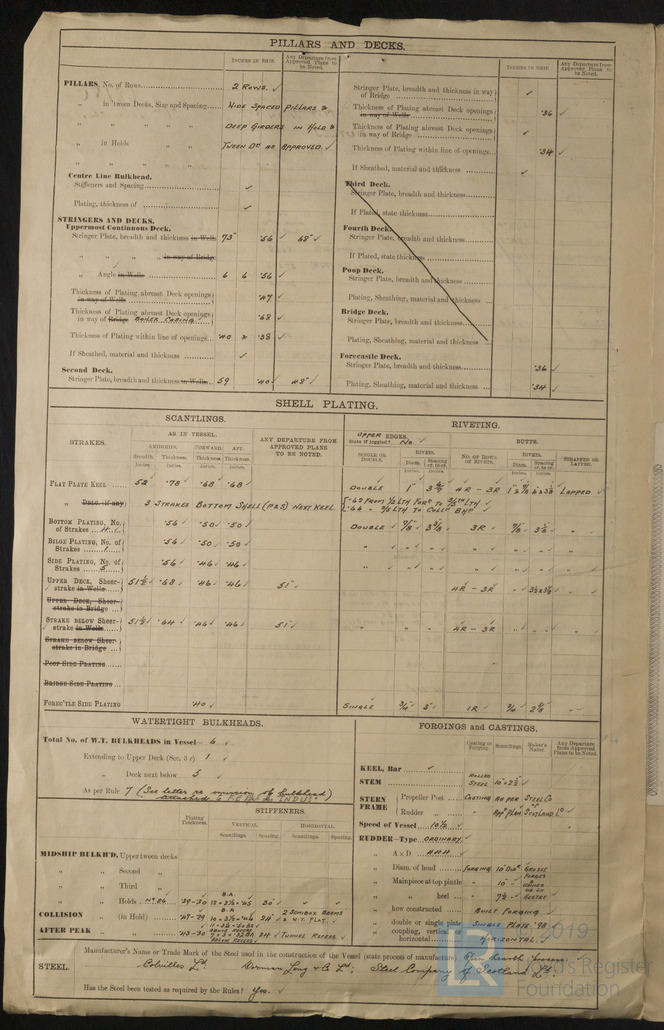 PILLARS AND DECKS.
INCHES IN SHIP.
Any Departure from Approved Plans to be Noted.
PILLARS, No. of Rows 2 ROWS. ✓
„ in 'tween Decks, Size and Spacing WIDE SPACED PILLARS &
„ „ „ „ DEEP GIRDERS IN HOLD &
„ in Holds „ „ TWEEN DK AS APPROVED. ✓
„ „ „ „
Centre Line Bulkhead.
Stiffeners and Spacing ✓
Plating, thickness of ✓
STRINGERS AND DECKS.
Uppermost Continuous Deck.
Stringer Plate, breadth and thickness in Wells 73" ·56 ✓ 68" ✓
„ „ „ „ in way of Bridge
„ Angle in Wells 6 6 ·56 ✓
Thickness of Plating abreast Deck openings in way of Wells ·47 ✓
Thickness of Plating abreast Deck openings in way of Bridge BOILER CASING ✓ ·68 ✓
Thickness of Plating within line of openings ·40 & ·38 ✓
If Sheathed, material and thickness ✓
Second Deck.
Stringer Plate, breadth and thickness in Wells 59 ·40 ✓ 48" ✓
INCHES IN SHIP.
Any Departure from Approved Plans to be Noted.
Stringer Plate, breadth and thickness in way of Bridge ✓
Thickness of Plating abreast Deck openings in way of Wells ·36 ✓
Thickness of Plating abreast Deck openings in way of Bridge ✓
Thickness of Plating within line of openings ·34 ✓
If Sheathed, material and thickness ✓
Third Deck.
Stringer Plate, breadth and thickness
If Plated, state thickness
Fourth Deck.
Stringer Plate, breadth and thickness
If Plated, state thickness
Poop Deck.
Stringer Plate, breadth and thickness
Plating, Sheathing, material and thickness
Bridge Deck.
Stringer Plate, breadth and thickness
Plating, Sheathing, material and thickness
Forecastle Deck.
Stringer Plate, breadth and thickness ·36 ✓
Plating, Sheathing, material and thickness ·34 ✓
SHELL PLATING.
SCANTLINGS.
STRAKES.
AS IN VESSEL.
AMIDSHIPS. FORWARD. AFT.
Breadth. Thickness. Thickness. Thickness.
Inches. Inches. Inches. Inches.
ANY DEPARTURE FROM APPROVED PLANS TO BE NOTED.
RIVETING.
UPPER EDGES.
State if joggled? No. ✓
SINGLE OR DOUBLE.
RIVETS.
Diam. Spacing
Inches. Inches.
BUTTS.
NO. OF ROWS OF RIVETS.
RIVETS.
Diam. Spacing
Inches. Inches.
STRAPPED OR LAPPED.
FLAT PLATE KEEL 52 ✓ ·78 ✓ ·68 ✓ ·68 ✓ DOUBLE 1" 4R - 3R LAPPED ✓
„ DBLG. (if any) 3 STRAKES BOTTOM SHELL (P&S) NEXT KEEL
BOTTOM PLATING, No. of Strakes 4 ✓ ·56 ✓ ·50 ✓ ·50 ✓ DOUBLE 7/8 ✓ 3R ✓ 7/8 ✓ „
BILGE PLATING, No. of Strakes 1 ✓ ·56 ✓ ·50 ✓ ·50 ✓ „ „ „ „ „
SIDE PLATING, No. of Strakes 5 ✓ ·56 ✓ ·46 ✓ ·46 ✓ „ „ „ „ „
UPPER DECK, Sheerstrake in Wells 51½ ✓ ·68 ✓ ·46 ✓ ·46 ✓ 51" ✓ 4R - 3R ✓
UPPER DECK, Sheerstrake in Bridge
STRAKE BELOW Sheerstrake in Wells 51½ ✓ ·64 ✓ ·46 ✓ ·46 ✓ 51" ✓ „ „ „ 4R - 3R „ „
STRAKE BELOW Sheerstrake in Bridge
POOP SIDE PLATING
BRIDGE SIDE PLATING
FOREC'TLE SIDE PLATING ·40 ✓ SINGLE ¾ ✓ 3" ✓ 1R ✓ ¾ ✓ „
WATERTIGHT BULKHEADS.
Total No. of W.T. BULKHEADS in Vessel 6 ✓
Extending to Upper Deck (Sec. 3 c) 1 ✓
„ Deck next below 5 ✓
As per Rule 7 (See letter re omission of bulkhead)
Plating Thickness.
STIFFENERS.
VERTICAL. HORIZONTAL.
Scantlings. Spacing. Scantlings. Spacing.
MIDSHIP BULKH'D, Upper tween decks
„ „ Second „
„ „ Third „
„ „ Holds ·29-30 B.A. 30 ✓
COLLISION „ (in Hold) ·47-·29 B.A. 24 ✓
AFTER PEAK „ „ ·43-30 24 ✓ TUNNEL RECESS. ✓
FORGINGS and CASTINGS.
Casting or Forging. Scantlings. Maker's Name. Any Departure from Approved Plans to be Noted.
KEEL, Bar ✓
STEM ROLLED STEEL 10" × 2½" ✓
STERN FRAME
Propeller Post CASTING AS PER STEEL CO
Rudder „ APPD PLAN SCOTLAND LD ✓
Speed of Vessel 10½ ✓
RUDDER—Type ORDINARY. ✓
„ A × D ✓
„ Diam. of head FORGING 10 DIAR
„ Mainpiece at top pintle „ 10
„ „ heel „ 7½ ✓
„ how constructed BUILT FORGING ✓
„ double or single plate SINGLE PLATE
„ coupling, vertical or horizontal HORIZONTAL ✓
STEEL.
Manufacturer's Name or Trade Mark of the Steel used in the construction of the Vessel (state process of manufacture) Open Hearth process
Colvilles Ld. Dorman Long & Co Ld; Steel Company of Scotland Ld.
Has the Steel been tested as required by the Rules? Yes. ✓
LR
2019
Lloyd's Register
Foundation